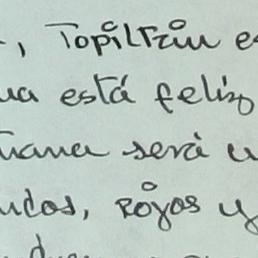 , Topiltzin e
ua está feliz
tiana será u
udos, rojos y